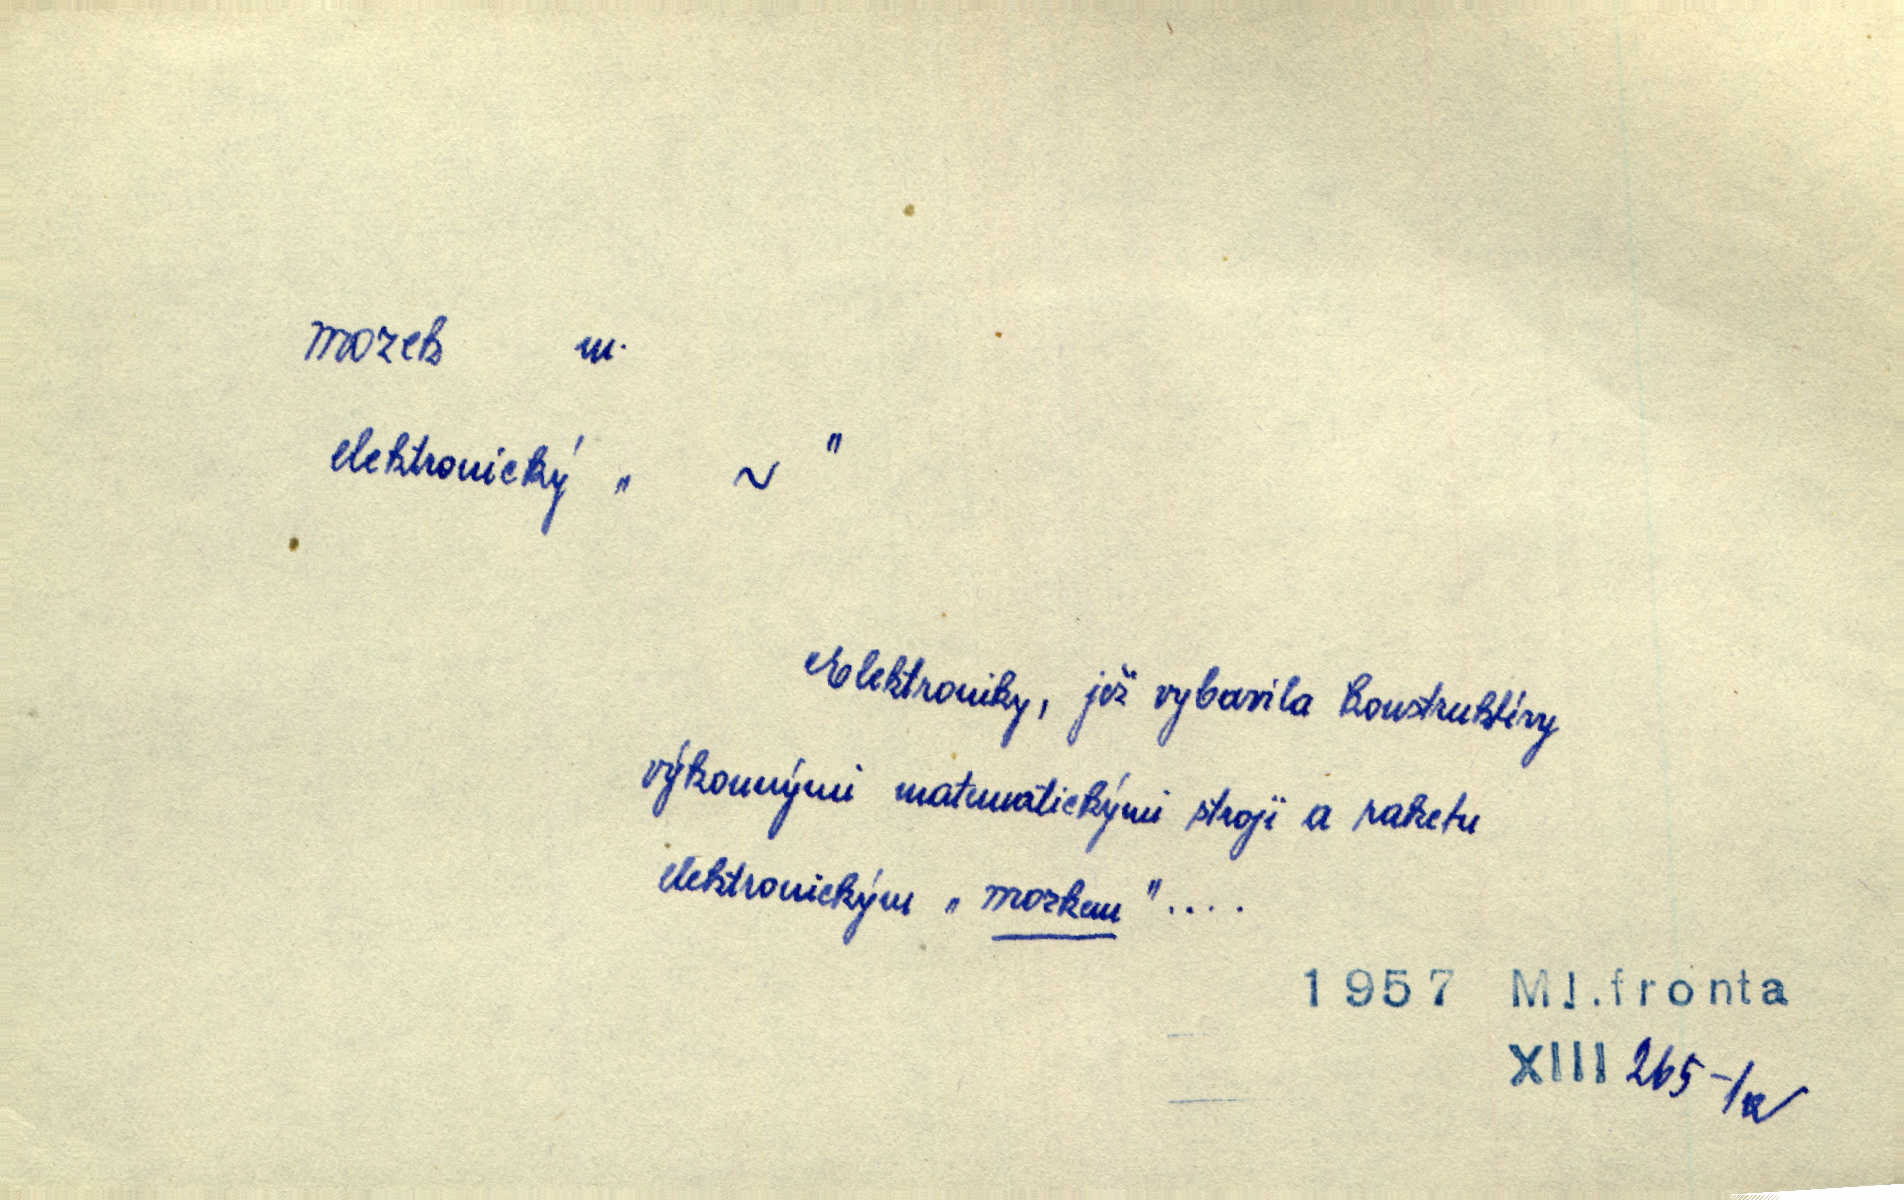 mozek m.
elektronický „ ~ "
Elektroniky, jež vybavila konstruktéry
výkonnými matematickými stroji a raketu
elektronickým „mozkem"....
1957 Ml.fronta
XIII 265